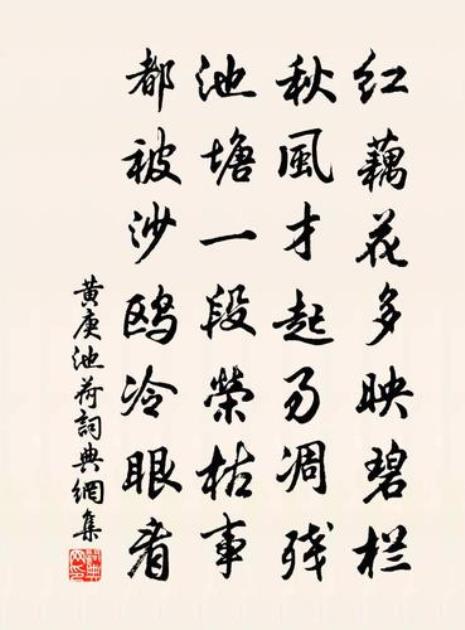 红藕花多映碧栏
秋風才起易凋残
池塘一段榮枯事
都被沙鸥冷眼看
黄庚池荷詞典網集